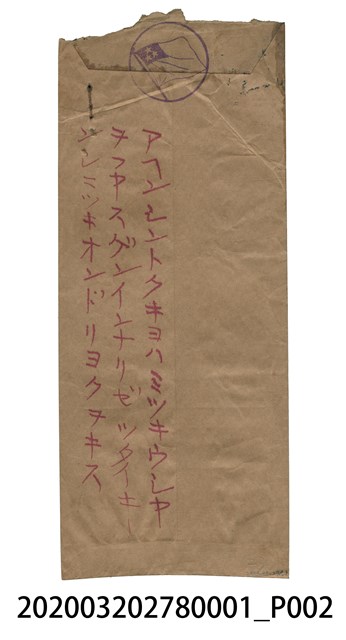 アヘンシントクキヨハミツキウシヤ
ヲフヤスダンインナリゼツタイキ
シミツキオンドリヨクヲキス
202003202780001_P002